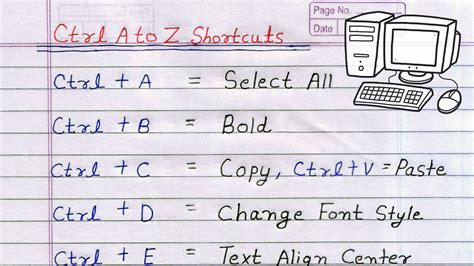 Page No.
Date
Ctrl A to Z Shortcuts
Ctrl + A = Select All
Ctrl + B = Bold
Ctrl + C = Copy, Ctrl+V = Paste
Ctrl + D = Change Font Style
Ctrl + E = Text Align Center